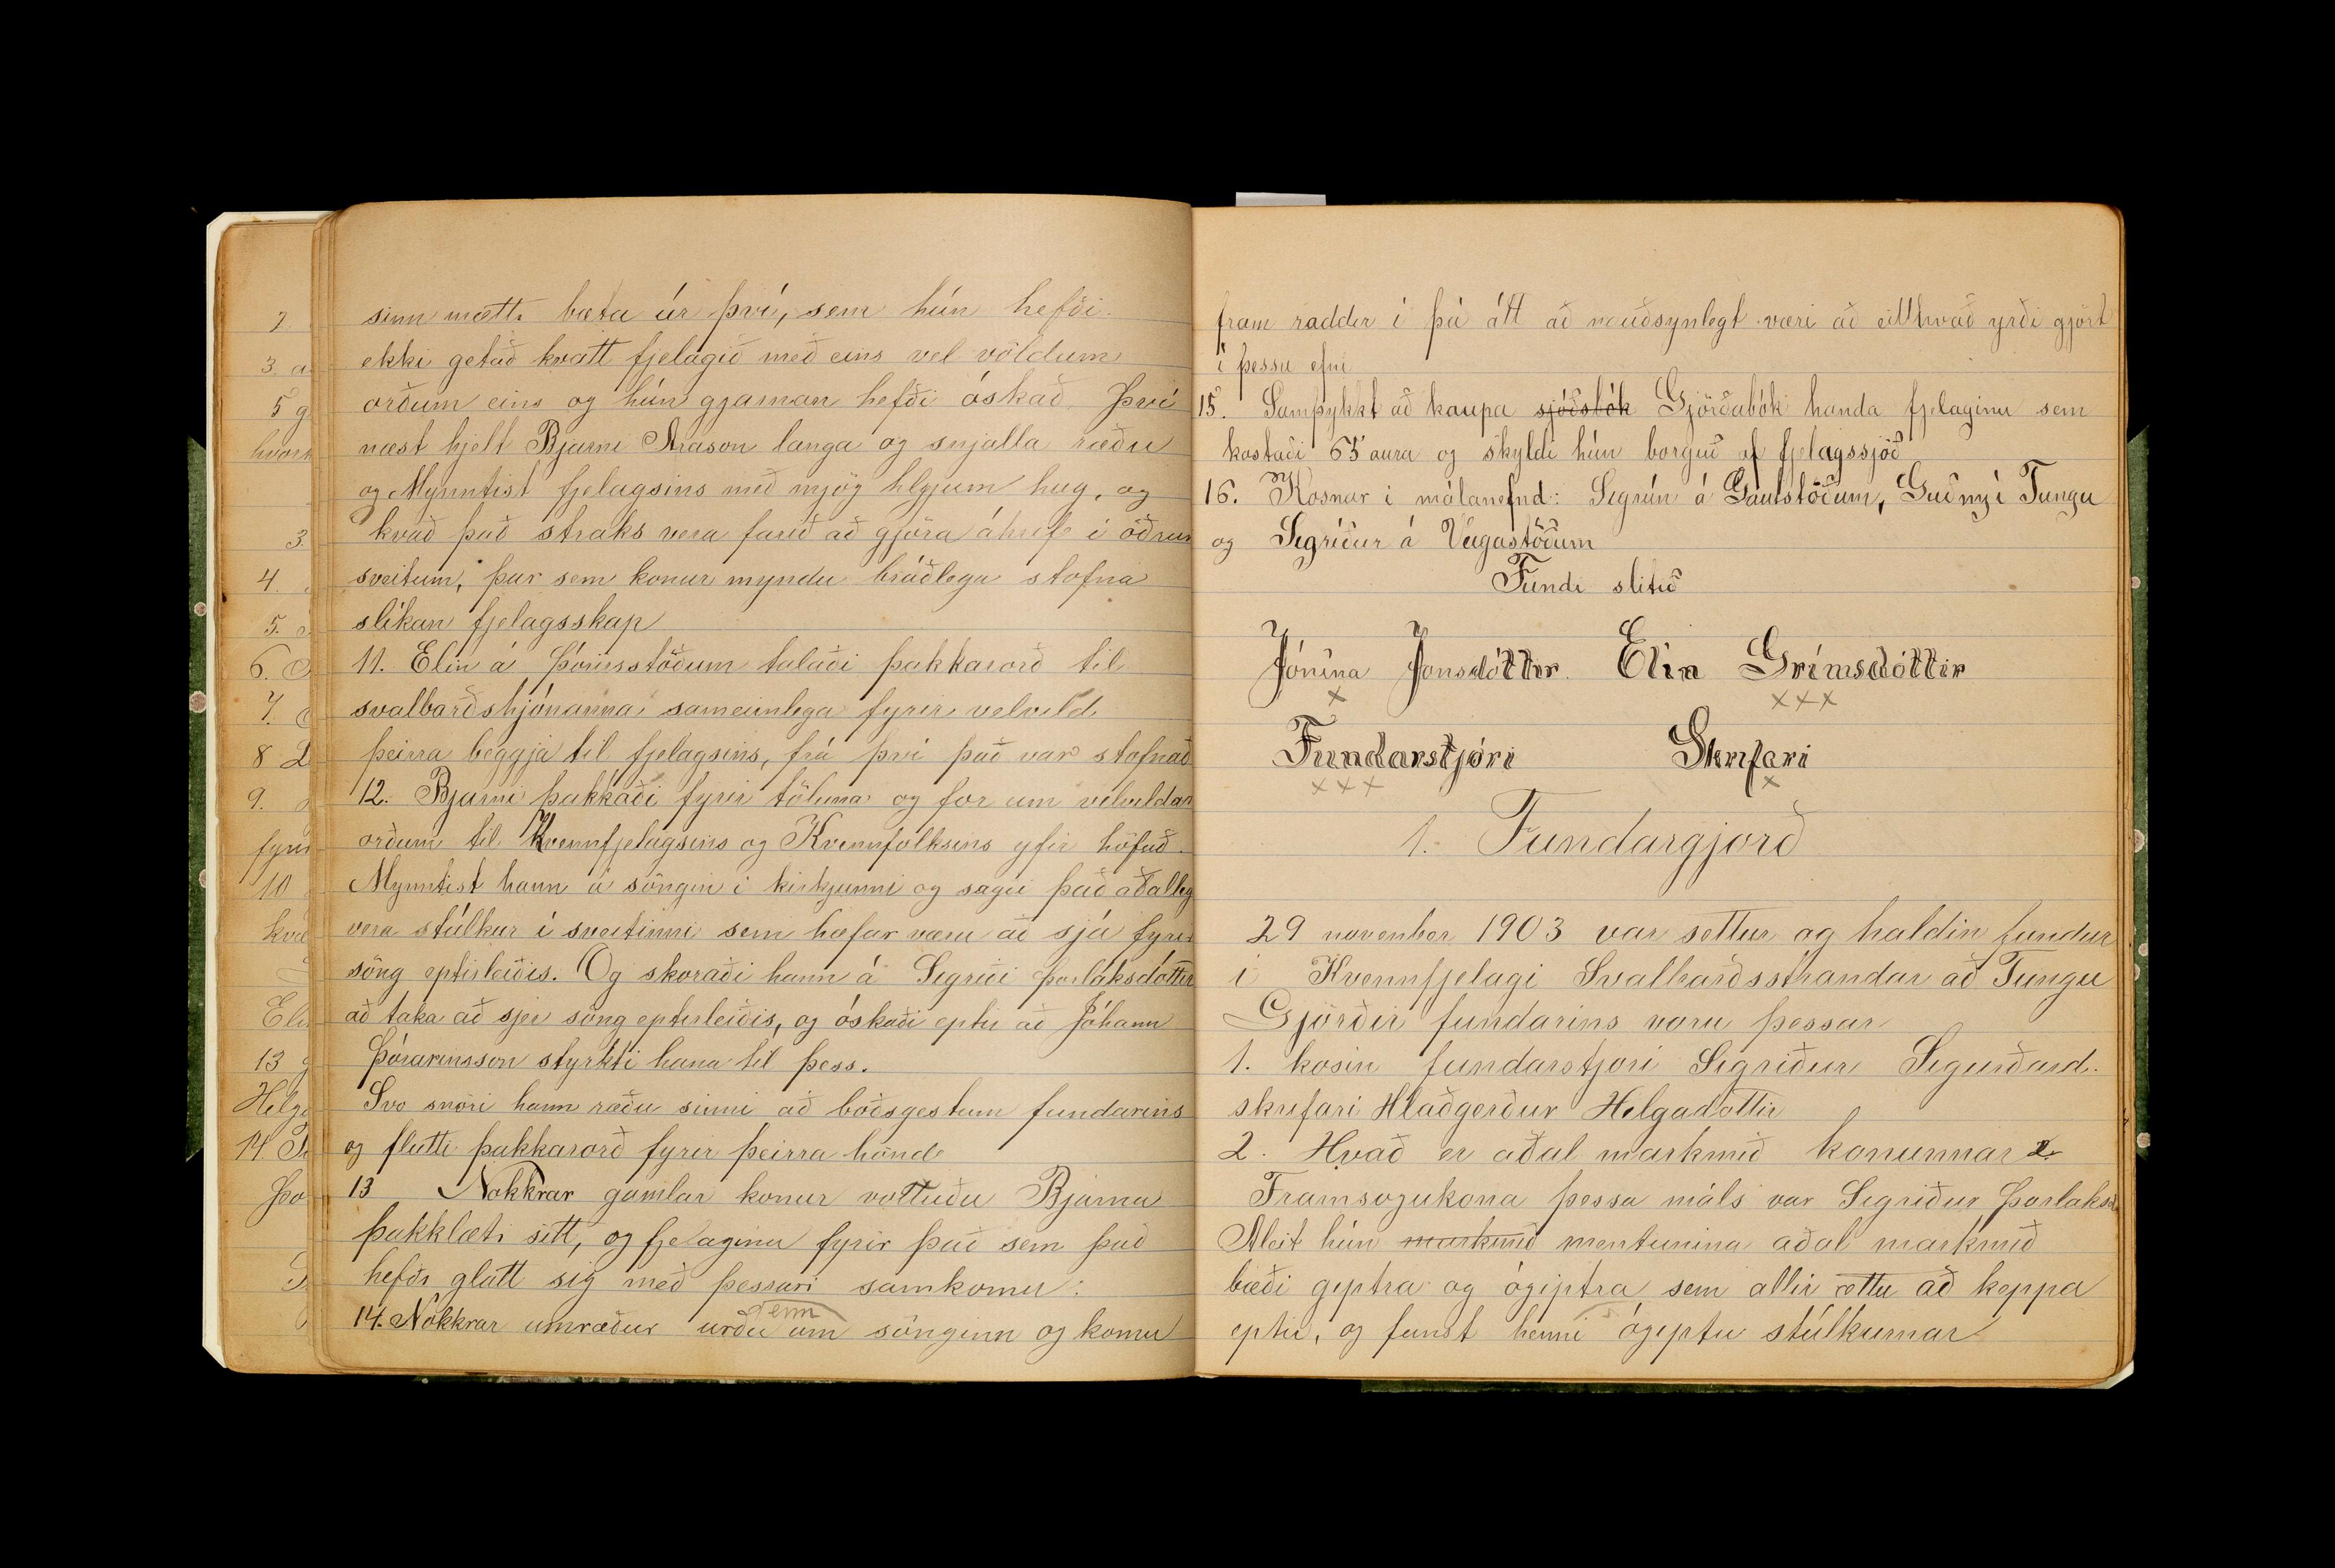 sinn mætti bæta úr því, sem hún hefði
ekki getað kvatt fjelagið með eins vel völdum
orðum eins og hún gjaman hefði óskað. Því
næst hjelt Bjarni Arason langa og snjalla ræðu
og Mynntist fjelagsins með mjög hlyjum hug, og
kvað það straks vera farið að gjöra áhrif i öðrum
sveitum, þar sem konur myndu bráðlega stofna
slíkan fjelagsskap
11. Elin á Þórisstöðum talaði þakkarorð til
svalbarðshjónanna sameinlega fyrir velvild
þeirra beggja til fjelagsins, frá því það var stofnað
12. Bjarni þakkaði fyrir töluna og for um velvildar
orðum til Kvennfjelagsins og Kvennfolksins yfir höfuð.
Mynntist hann á söngin i kirkjunni og sagði það aðalleg
vera stúlkur í sveitinni sem hæfar væru að sjá fyrir
söng eptirleiðis. Og skoraði hann á Sigriði þorláksdottir
að taka að sjer söng eptirleiðis, og óskaði eptir að Jóhann
Þórarinsson styrkti hana til þess.
Svo snöri hann ræðu sinni að boðsgestum fundarins
og flutti þakkarorð fyrir þeirra hönd
13 Nokkrar gamlar konur vottuðu Bjarna
þakklæti sitt, og fjelaginu fyrir það sem það
hefði glatt sig með þessari samkomu:
14. Nokkrar umræður urðu enn um sönginn og komu
fram raddir í þá átt að nauðsynlegt væri að eitthvað yrði gjört
i þessu efni
15. Samþykkt að kaupa sjóðsbók Gjörðabók handa fjelaginu sem
kostaði 65 aura og skyldi hún borguð af fjelagssjóð
16. Kosnar i málanefnd: Sigrún á Gautstöðum, Guðny i Tungu
og Sigríður á Veigastöðum
Fundi slitið
Jónína Jonsdóttir. Elin Grímsdóttir
x xxx
Fundarstjóri Skrifari
xxx x
1. Fundargjorð
29 november 1903 var settur og haldin fundur
i Kvennfjelagi Svalbarðsstrandar að Tungu
Gjörðir fundarins voru þessar
1. kosin fundarstjori Sigriður Sigurðard.
skrifari Hlaðgerður Helgadottir
2. Hvað er aðal markmið konunnar 2.
Framsogukona þessa máls var Sigriður Þorlaksd
Aleit hún markmið mentunina aðal markmið
bæði giptra og ógiptra sem allir ættu að keppa
eptir, og fanst henni ógiptu stúlkurnar
7
3. a
5 g
3.
4.
5.
6.
7.
8
9.
fyrir
10
13 g
Helga
14
Þo